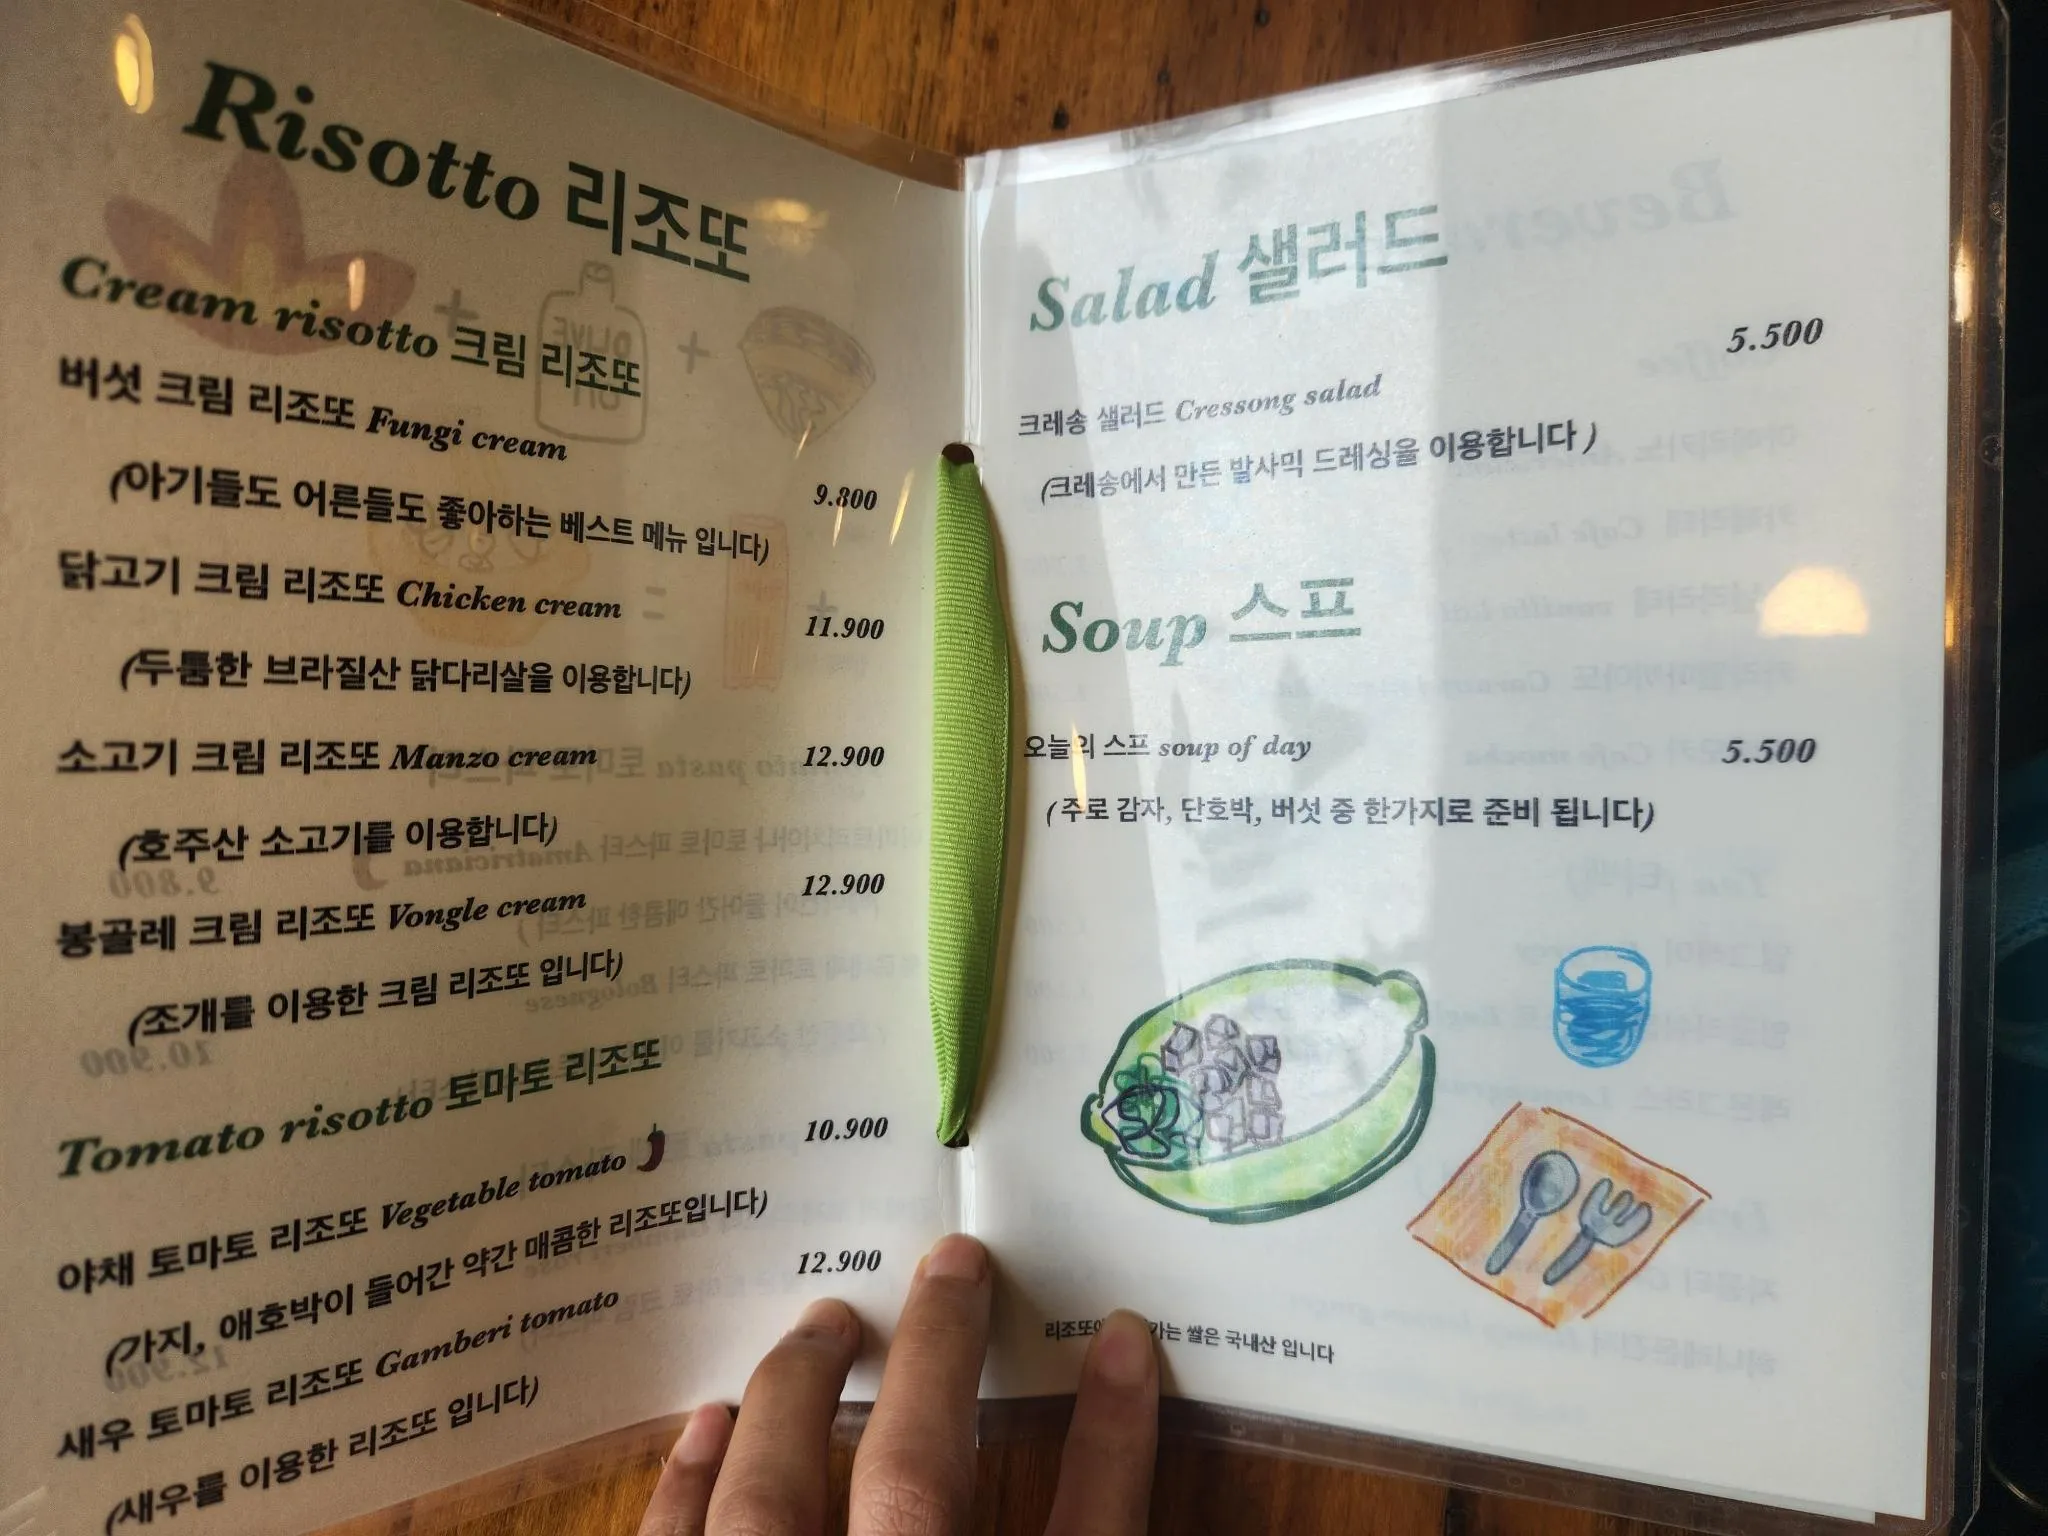 Risotto 리조또
Cream risotto 크림 리조또
버섯 크림 리조또 Fungi cream
9.800
(아기들도 어른들도 좋아하는 베스트 메뉴 입니다)
닭고기 크림 리조또 Chicken cream
11.900
(두툼한 브라질산 닭다리살을 이용합니다)
소고기 크림 리조또 Manzo cream 12.900
(호주산 소고기를 이용합니다)
봉골레 크림 리조또 Vongle cream 12.900
(조개를 이용한 크림 리조또 입니다)
Tomato risotto 토마토 리조또
야채 토마토 리조또 Vegetable tomato 10.900
(가지, 애호박이 들어간 약간 매콤한 리조또입니다)
새우 토마토 리조또 Gamberi tomato 12.900
(새우를 이용한 리조또 입니다)
Salad 샐러드
5.500
크레송 샐러드 Cressong salad
(크레송에서 만든 발사믹 드레싱을 이용합니다 )
Soup 스프
오늘의 스프 soup of day 5.500
( 주로 감자, 단호박, 버섯 중 한가지로 준비 됩니다)
쌀은 국내산 입니다